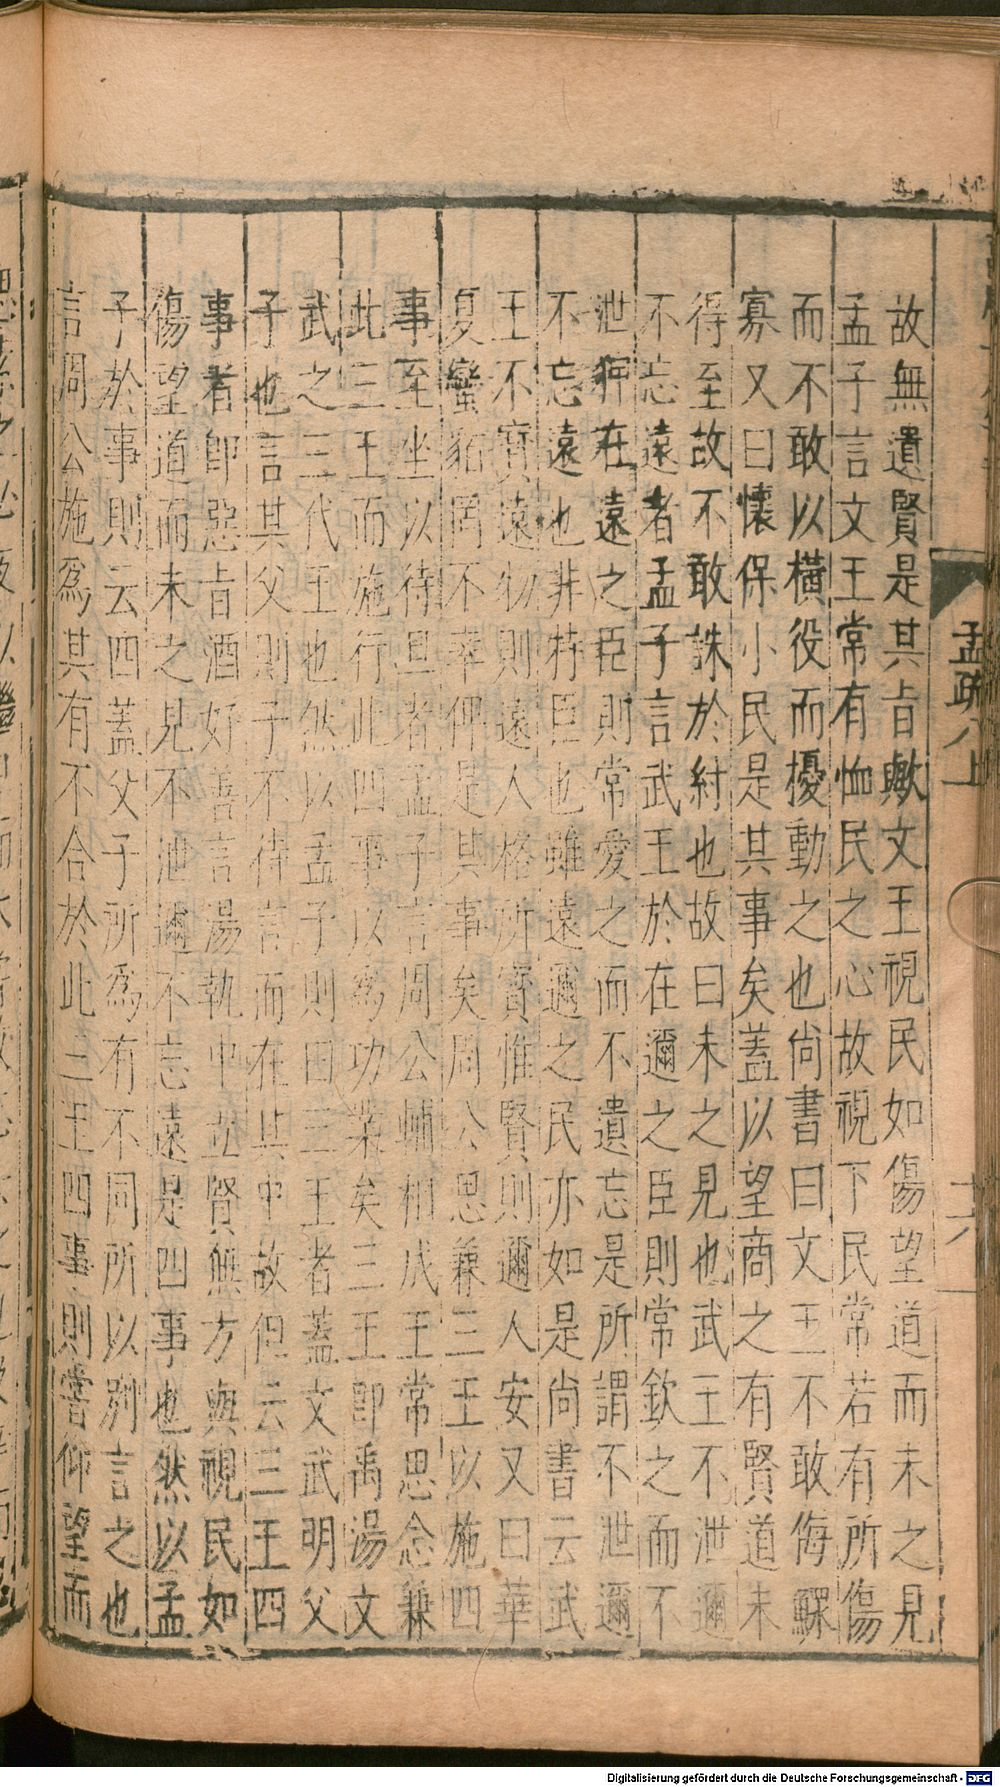 孟疏八上　十六
故無遺賢是其旨歟文王視民如傷望道而未之見
孟子言文王常有恤民之心故視下民常若有所傷
而不敢以橫役而擾動之也尚書曰文王不敢侮鰥
寡又曰懷保小民是其事矣蓋以望商之有賢道未
得至故不敢誅於紂也故曰未之見也武王不泄邇
不忘遠者孟子言武王於在邇之臣則常欽之而不
泄狎在遠之臣則常愛之而不遺忘是所謂不泄邇
不忘遠也非特臣也雖遠邇之民亦如是尚書云武
王不寶遠物則遠人格所寶惟賢則邇人安又曰華
夏蠻貊罔不率俾是其事矣周公思兼三王以施四
事至坐以待旦者孟子言周公輔相成王常思念兼
此三王而施行此四事以爲功業矣三王即禹湯文
武之三代王也然以孟子則曰三王者蓋文武明父
子也言其父則子不待言而在其中故但云三王四
事者即惡旨酒好善言湯執中立賢無方與視民如
傷望道而未之見不泄邇不忘遠是四事也然以孟
子於事則云四蓋父子所爲有不同所以別言之也
言周公施爲其有不合於此三王四事則嘗仰望而
Digitalisierung gefördert durch die Deutsche Forschungsgemeinschaft - DFG